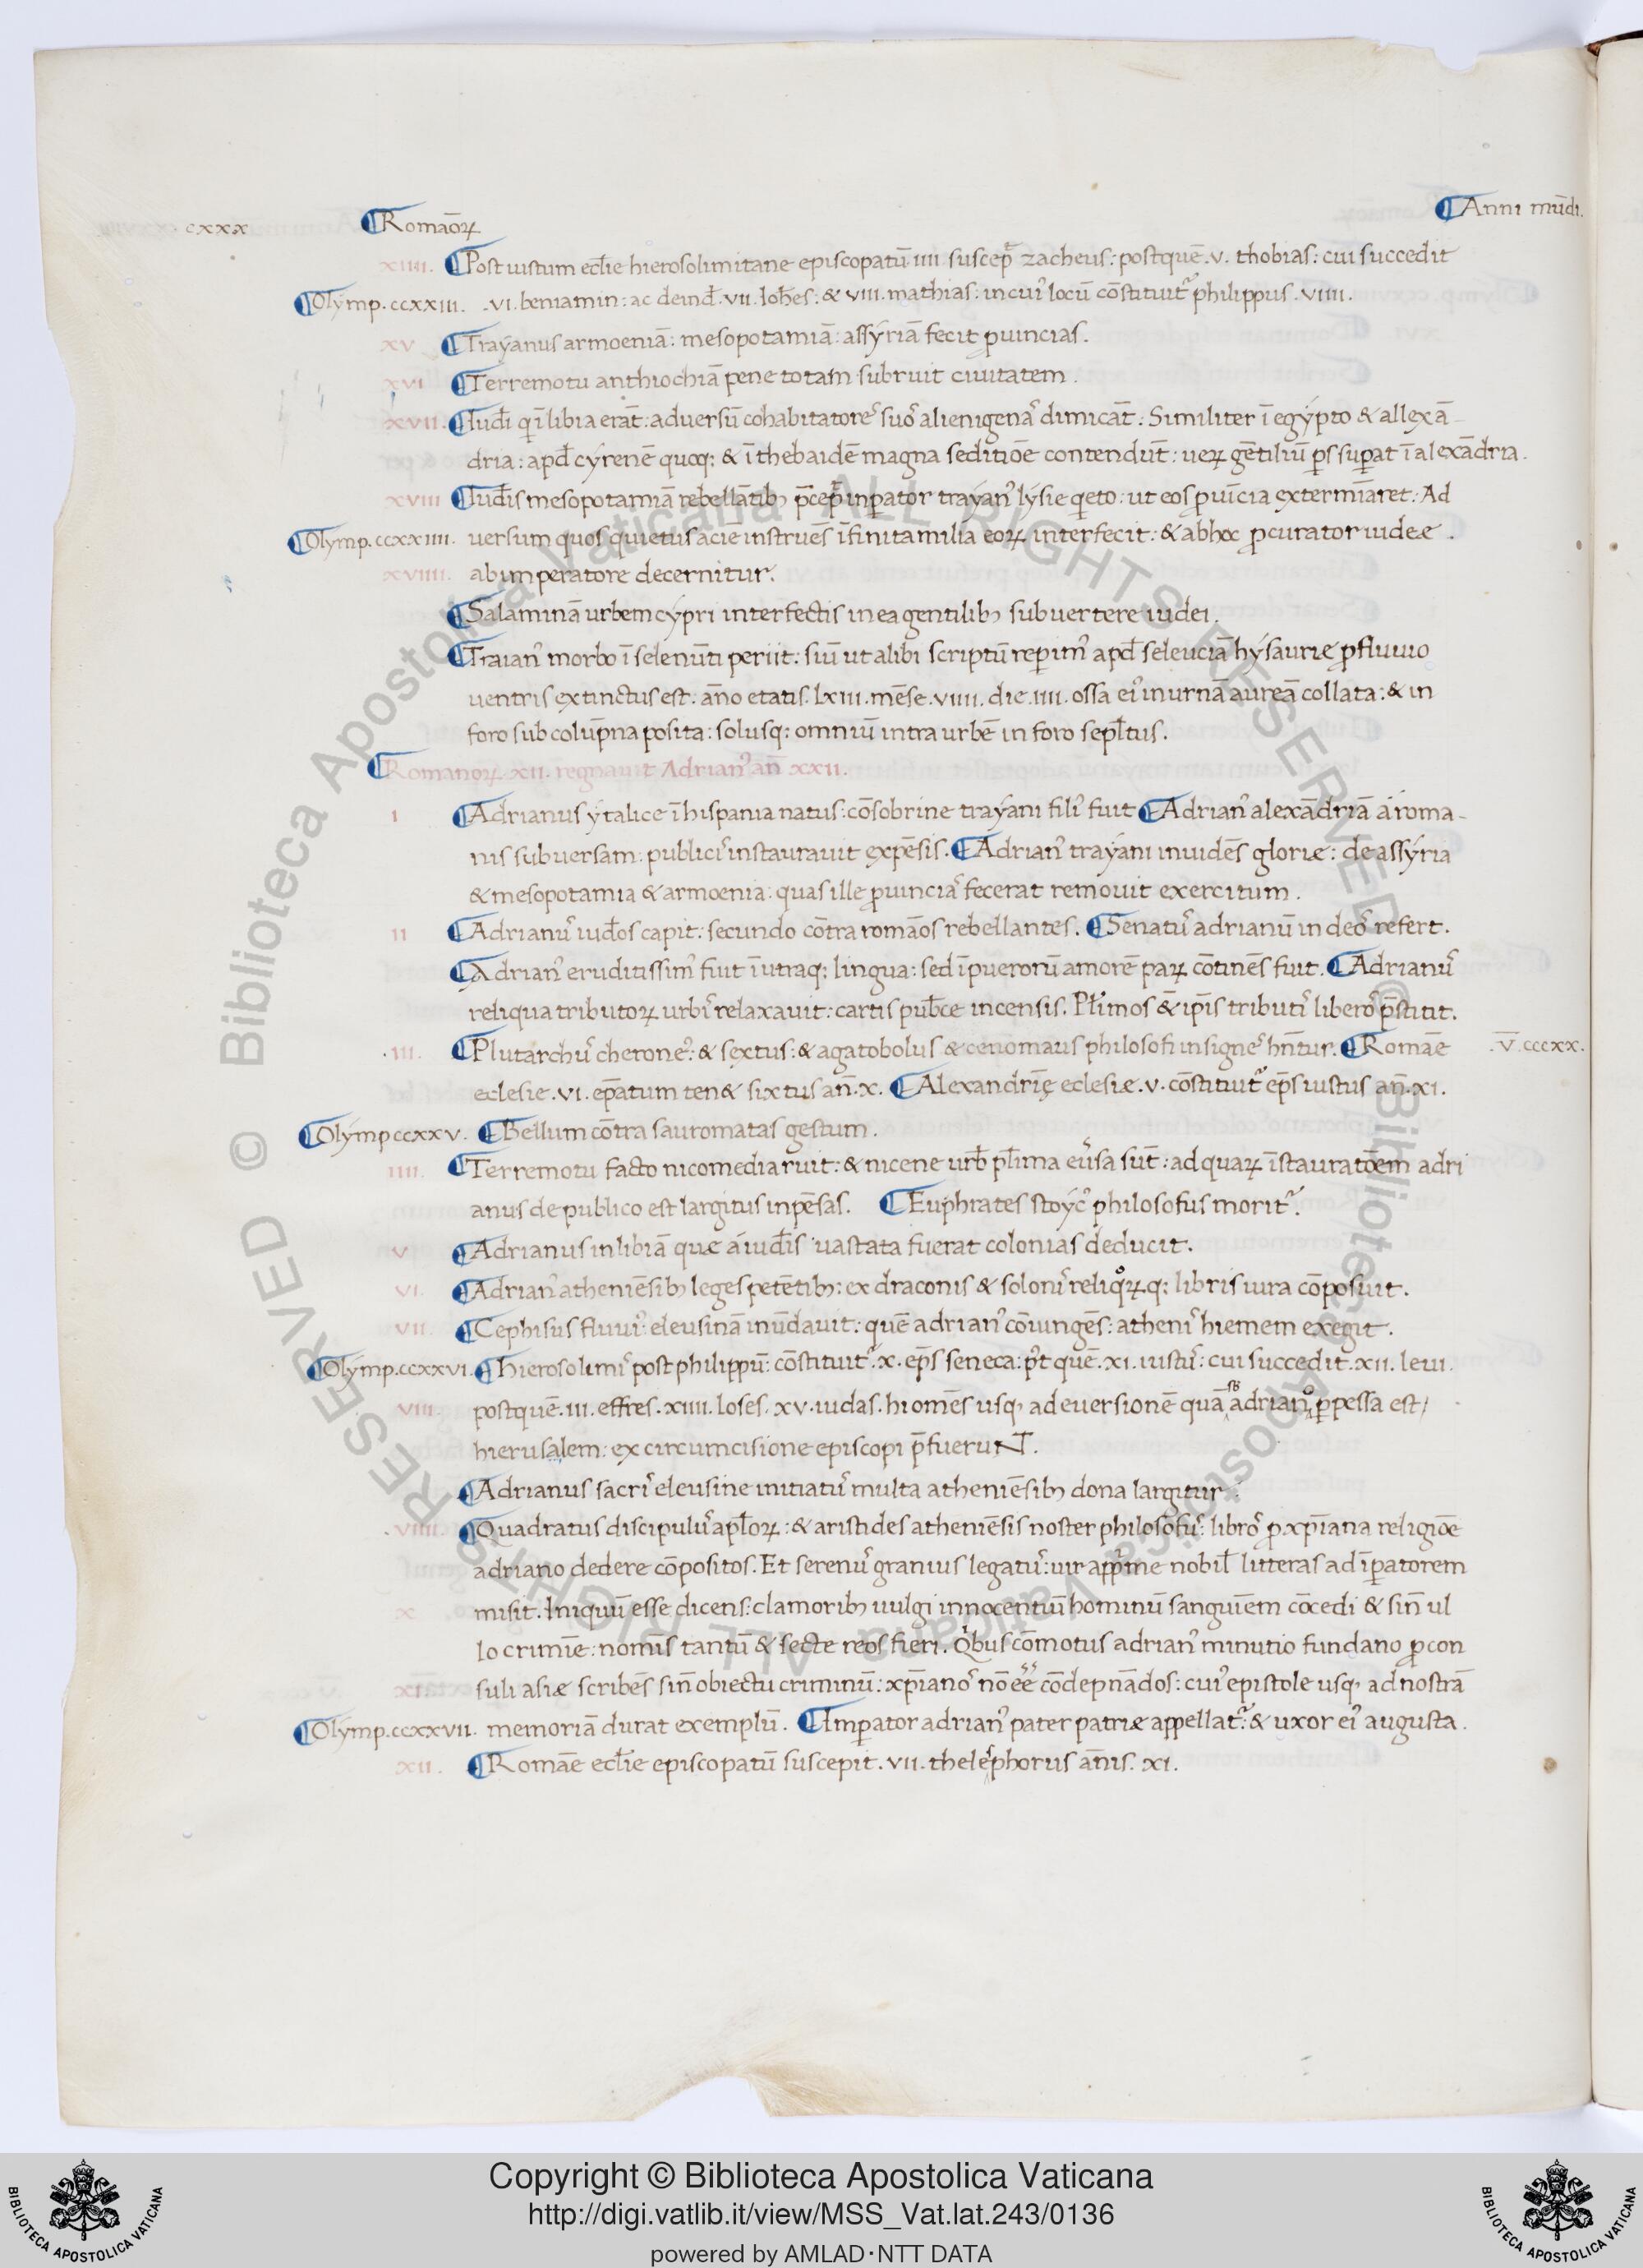 cxxx ¶Romāoꝝ ¶Anni mūdi.
xiiii. ¶Post iustum ecl̄ie hierosolimitane episcopatū iiii suscep̄ zacheus: postquē .v. thobias: cui succedit
¶Olymp. ccxxiii. .vi. beniamin: ac deind̄ .vii. Ioh̄es: & viii. mathias: in cuiꝰ locū cōstituitᷣ philippus .viiii.
xv ¶Trayanus armoeniā: mesopotamiā: assyriā fecit ꝓuincias.
xvi ¶Terremotu anthiochiā pene totam subruit ciuitatem.
xvii. ¶Iud̄i qͥ ī libia erāt: aduersū cohabitatoreˢ suoˢ alienigenaˢ dimicāt: Similiter ī egypto & allexā
dria: apd̄ cyrenē quoqꝫ & ī thebaidē magna seditiōe contendūt: ueꝝ gētiliū ꝑs suꝑat ī alexādria.
xviii ¶Iud̄is mesopotamiā rebellātibꝫ p̄cep̄ inꝑator trayanꝰ lysie qͥeto: ut eos ꝓuīcia extermīaret: Ad
¶Olymp. ccxxiiii. uersum quos quietus acie instruēs īfinita milia eoꝝ interfecit: & ab hoc ꝓcurator iudee.
xviiii. ab imperatore decernitur.
¶Salaminā urbem cypri interfectis in ea gentilibꝫ subuertere iudei.
¶Traianꝰ morbo ī selenūti periit: siū ut alibi scriptū reꝑimꝰ apd̄ seleuciā hysaurie ꝓfluuio
uentris extinctus est: āno etatis. lxiii. mēse .viiii. die .iiii. ossa eiꝰ in urnā aureā collata: & in
foro sub colūpna posita: solusqꝫ omniū intra urbē in foro sepl̄tus.
¶Romanoꝝ xii. regnauit Adrianꝰ añ xxii.
i ¶Adrianus ytalice ī hispania natus: cōsobrine trayani filiꝰ fuit ¶Adrianꝰ alexādriā a roma-
nis subuersam: publiciˢ instaurauit expēsis. ¶Adrianꝰ trayani inuidēs gloriæ: de assyria
& mesopotamia & armoenia: quas ille ꝓuinciaˢ fecerat remouit exercitum.
ii ¶Adrianuˢ iud̄os capit: secundo cōtra romāos rebellantes. ¶Senatuˢ adrianū in deoˢ refert.
¶Adrianꝰ eruditissimꝰ fuit ī utraqꝫ lingua: sed ī puerorū amorē paꝝ cōtinēs fuit. ¶Adrianuˢ
reliqua tributoꝝ urbiˢ relaxauit: cartis pub̄ce incensis. Pl̄imos & īp̄is tributiˢ liberoˢ p̄stitit.
.iii. ¶Plutarchuˢ cheroneꝰ: & sextus: & agatobolus & cenomaus philosofi insigneˢ hn̄tur. ¶Romāe .v̄.cccxx.
eclesie .vi. ep̄atum ten& sixtus añ. x. ¶Alexandrię eclesiæ .v. cōstituitᷣ ep̄s iustus añ. xi.
¶Olymp ccxxv. ¶Bellum cōtra sauromatas gestum.
iiii. ¶Terremotu facto nicomedia ruit: & nicene urb̄ pl̄ima eūˢsa sūt: ad quaꝝ īstauratōem adri
anus de publico est largitus inpēsas. ¶Euphrates stoycꝰ philosofus moritᷣ.
v ¶Adrianus in libiā que a iud̄is uastata fuerat colonias deducit.
vi. ¶Adrianꝰ atheniēsibꝫ leges petētibꝫ: ex draconis & soloniˢ reliqͦꝝqꝫ libris iura cōposuit.
vii. ¶Cephisus fluuiꝰ: eleusinā inūdauit: quē adrianꝰ cōiungēs: atheniˢ hiemem exegit.
¶Olymp. ccxxvi. ¶hierosolimiˢ post philippū: cōstituitᷣ .x. ep̄s seneca: pꝰt quē .xi. iustuˢ: cui succedit .xii. leui.
viii. postquē .iii. effres. xiiii. Ioses. xv. iudas. hi omēs usqꝫ ad euersionē quā sb̄ adrianͦ ꝑpessa est/
hierusalem: ex circumcisione episcopi p̄fueruNT.
¶Adrianus sacriˢ eleusine initiatuˢ multa atheniēsibꝫ dona largitur.
.viiii. ¶Quadratus discipuluˢ apl̄oꝝ: & aristides atheniēsis noster philosofuˢ: libroˢ ꝓ xp̄iana religiōe
adriano dedere cōpositos. Et serenuˢ granius legatuˢ: uir appͥme nobil̄ litteras ad īꝑatorem
x misit. Iniquū esse dicens: clamoribꝫ uulgi innocentiū hominū sanguīem cōcedi & sin̄ ul
lo crimīe: nomīs tantū & secte reos fieri. Qͥbus cōmotus adrianꝰ minutio fundano ꝓcon
xi. suli asiæ scribēs sin̄ obiectu criminū: xp̄ianoˢ nō eē cōdepnādos: cuiꝰ epistole usqꝫ ad nostrā
¶Olymp. ccxxvii. memoriā durat exemplū. ¶Imꝑator adrianꝰ pater patriæ appellatᷣ: & uxor eiꝰ augusta.
xii. ¶Romāe ecl̄ie episcopatū suscepit .vii. thelesphorus ānis. xi.
© Biblioteca Apostolica Vaticana ALL RIGHTS RESERVED © Biblioteca Apostolica Vaticana ALL RIGHTS RESERVED
Copyright © Biblioteca Apostolica Vaticana
http://digi.vatlib.it/view/MSS_Vat.lat.243/0136
powered by AMLAD·NTT DATA
BIBLIOTECA APOSTOLICA VATICANA
BIBLIOTECA APOSTOLICA VATICANA